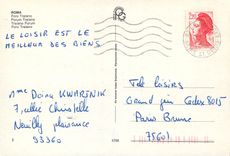 ROMA
Foro Traiano
Forum Traiano
Traiano Forum
Foro Traiano
LE LOISIR EST LE
MEILLEUR DES BIENS.
Mme Doina KWARTNIK
7, allée Christelle
Neuilly plaisance
93360
2,20
Télé Loisirs
Grand prix Cedex 8015
Paris Brune
75601